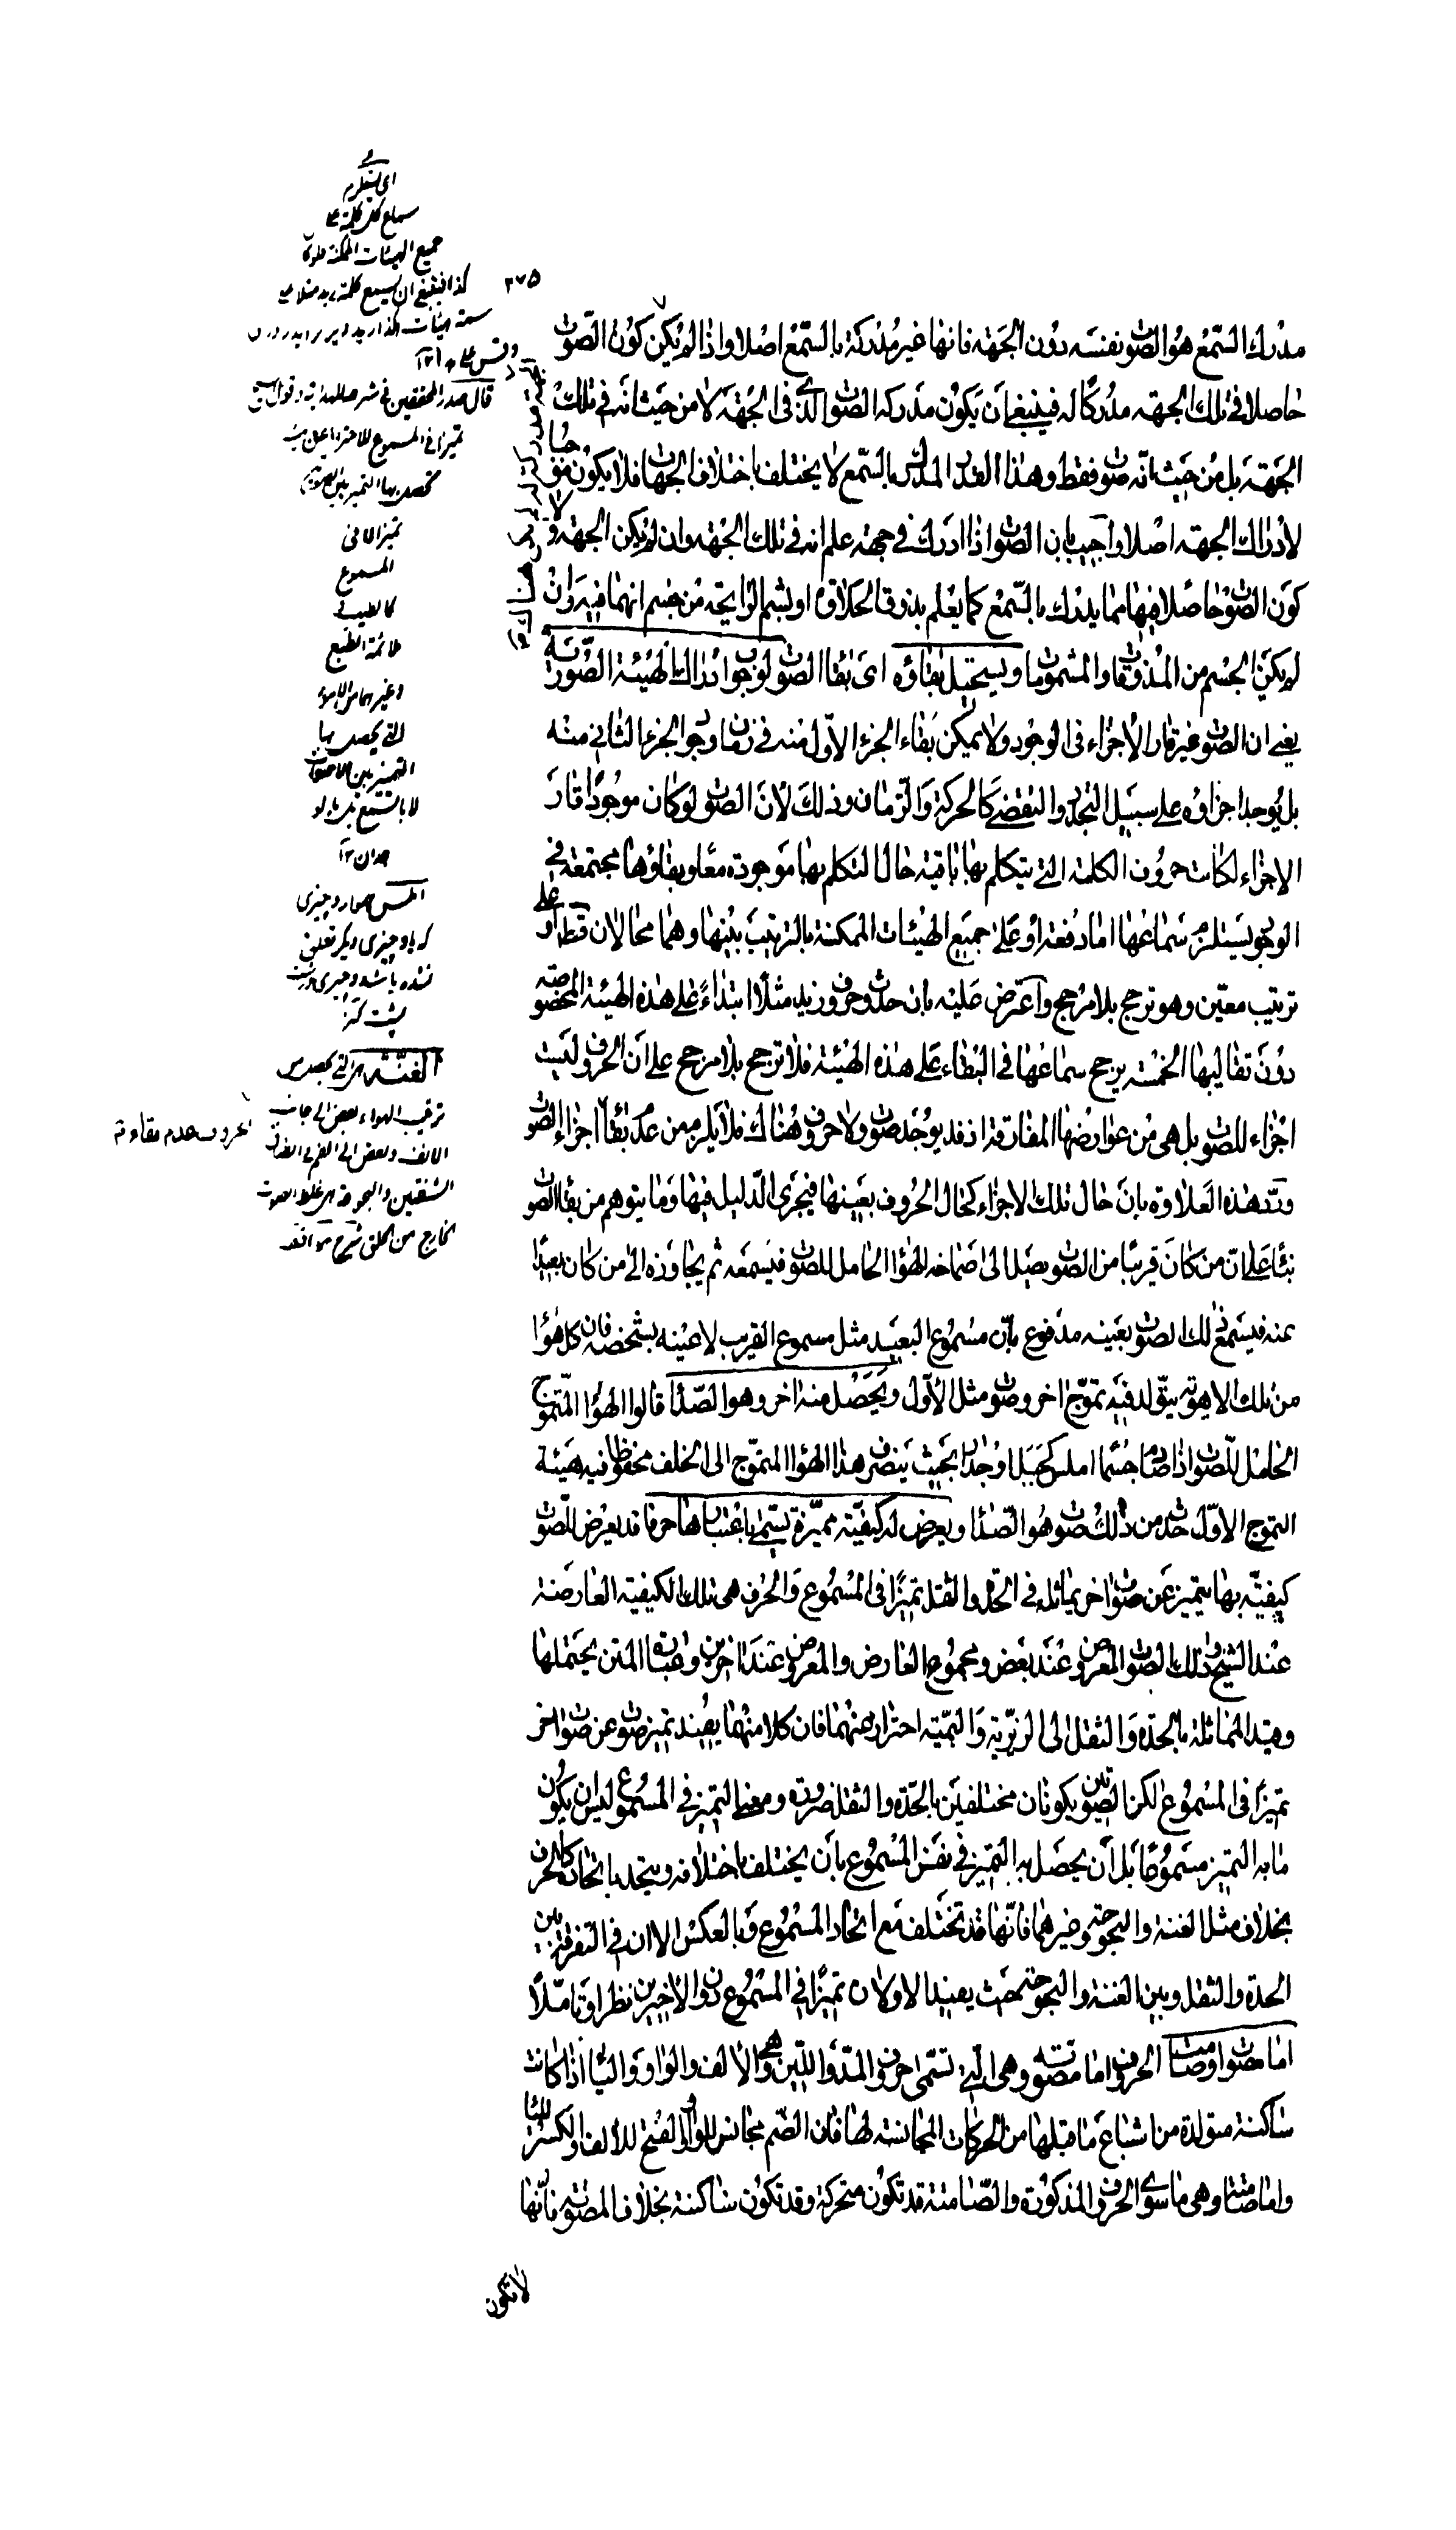 ٣٧٥
مدرك السمع هو الصوت نفسه دون الجهة فانها غير مدركة بالسمع اصلا واذا لم يكن كون الصوت
حاصلا في تلك الجهة مدركا له فينبغي ان يكون مدركه الصوت الذي في الجهة لا من حيث انه في تلك
الجهة بل من حيث انه صوت فقط وهذا القدر المدرك بالسمع لا يختلف باختلاف الجهات فلا يكون موجبا
لادراك الجهة اصلا واجيب بان الصوت اذا ادرك في جهة علم انه في تلك الجهة وان لم يكن الجهة ولا
كون الصوت حاصلا فيها مما يدرك بالسمع كما يعلم بذوق الحلاوة او بشم الرايحة من جسم انهما فيه وان
لم يكن الجسم من المذوقات والمشمومات ويستحيل بقاؤه اى بقاء الصوت لوجوب ادراك الهيئة الصورية
يعني ان الصوت غير قار الاجزاء في الوجود ولا يمكن بقاء الجزء الاول منه في زمان وجود الجزء الثاني منه
بل يوجد اجزاؤه على سبيل التجدد والتقضي كالحركة والزمان وذلك لان الصوت لو كان موجودا قار
الاجزاء لكانت حروف الكلمة التي يتكلم بها باقية حال التكلم بها موجودة معا وبقاؤها مجتمعة في
الوجود يستلزم سماعها اما دفعة او على جميع الهيئات الممكنة بالترتيب بينها وهما محالان قطعا او على
ترتيب معين وهو ترجيح بلا مرجح واعترض عليه بان حدوث حروف زيد مثلا ابتداء على هذه الهيئة المخصوصة
دون تقاليبها الخمسة يرجح سماعها في البقاء على هذه الهيئة فلا ترجيح بلا مرجح على ان الحروف ليست
اجزاء للصوت بل هي من عوارضها المفارقة اذ قد يوجد صوت ولا حروف هناك فلا يلزم من عدم بقائها اجزاء الصوت
وترد هذه العلاوة بان حال تلك الاجزاء كحال الحروف بعينها فيجرى الدليل فيها وما يتوهم من بقاء الصوت
بناء على ان من كان قريبا من الصوت يصل الى صماخه الهواء الحامل للصوت فيسمعه ثم يجاوزه الى من كان بعيدا
عنه فيسمع ذلك الصوت بعينه مدفوع بان مسموع البعيد مثل مسموع القريب لا عينه بشخصه فان كل هواء
من تلك الاهوية يتولد فيه تموج اخر وصوت مثل الاول ويحصل منه اخر وهو الصدا قالوا الهواء المتموج
الحامل للصوت اذا صادم جسما املس كجبل او جدار بحيث ينصرف هذا الهواء المتموج الى الخلف محفوظا فيه هيئة
التموج الاول حدث من ذلك صوت وهو الصدا ويعرض له كيفية مميزة يسمى باعتبارها حرفا قد يعرض للصوت
كيفية بها يتميز عن صوت اخر يماثله في الحدة والثقل تميزا في المسموع والحرف هي تلك الكيفية العارضة
عند الشيخ وذلك الصوت المعروض عند بعض ومجموع العارض والمعروض عند اخرين وعبارة المتن يحتملها
وقيد المماثلة بالحدة والثقل الى الزيرية والبمية احتراز عنهما فان كلا منهما يفيد تميز صوت عن صوت اخر
تميزا في المسموع لكن الصوتين يكونان مختلفين بالحدة والثقل ضرورة ومعنى التميز في المسموع ليس ان يكون
ما به التميز مسموعا بل ان يحصل به التميز في نفس المسموع بان يختلف باختلافه ويتحد باتحاده كالحرف
بخلاف مثل الغنة والبحوحة وغيرهما فانها قد تختلف مع اتحاد المسموع وبالعكس الا ان في التفرقة بين
الحدة والثقل وبين الغنة والبحوحة حيث يفيد الاولان تميزا في المسموع دون الاخيرين نظرا وتأملا
اما مصوت او صامت الحروف اما مصوتة وهي التي تسمى حروف المد واللين وهي الالف والواو والياء اذا كانت
ساكنة متولدة من اشباع ما قبلها من الحركات المجانسة لها فان الضم مجانس للواو والفتح للالف والكسر للياء
واما صامتة وهي ما سوى الحروف المذكورة والصامتة قد تكون متحركة وقد تكون ساكنة بخلاف المصوتة فانها
لا تكون
اى يستلزم
سماع كل كلمة على
جميع الهيئات الممكنة فلو كان
كذا فينبغي ان يسمع كلمة زيد مثلا على
ستة هيئات
وقس عليه ١٢
قال صدر المحققين في شرحه للهداية وقوله
تميزا في المسموع للاحتراز عن
تحصل بها التميز بين الصوتين
تميزا لا في
المسموع
كالطيب
ملائمة الطبع
وغيرهما من الامور
التي يحصل بها
التميز بين الاصوات
لا بالسمع بل بالو
جدان ١٢
املس هموار و چیزی
که باو چیزی دیگر تعلق
نشده باشد و چیزی درشت
پشت کنز
الغنة هي التي يحصل من
ترغيب الهواء بعض الى جانب
الانف وبعض الى الفم لا انطباق
الشفتين والبحوحة هي غلظ الصوت
الخارج من الحلق شرح مواقف